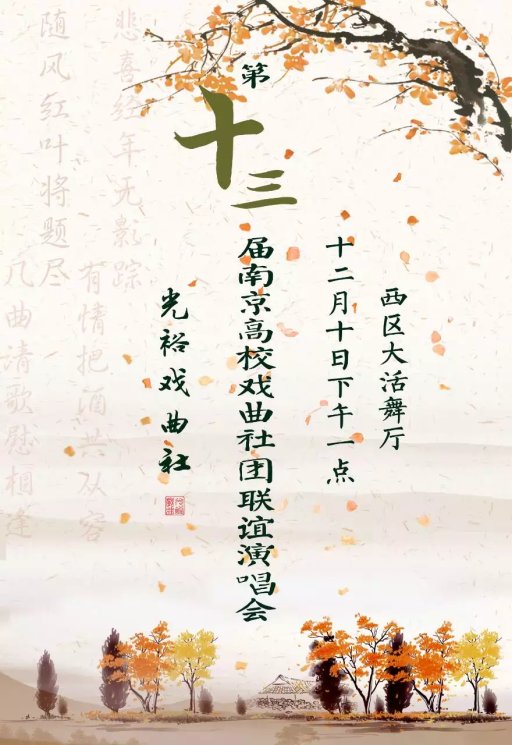 西区大活舞厅
十二月十日下午一点
第十三届南京高校戏曲社团联谊演唱会
光裕戏曲社
悲喜经年无影踪
有情把酒共从容
随风红叶将题尽
几曲清歌慰相逢